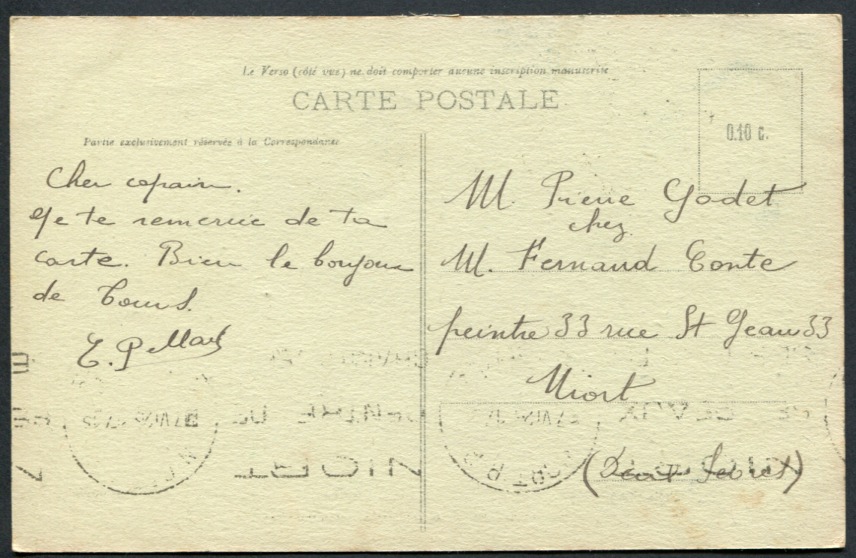 Le Verso (côté vue) ne doit comporter aucune inscription manuscrite
CARTE POSTALE
0.10 c.
Partie exclusivement réservée à la Correspondance
Cher copain.
Je te remercie de ta
carte. Bien le bonjour
de Tours.
M. Pierre Godet
chez
M. Fernand Conte
peintre 33 rue St Jean 33
Niort
(Deux Sèvres)
NIORT